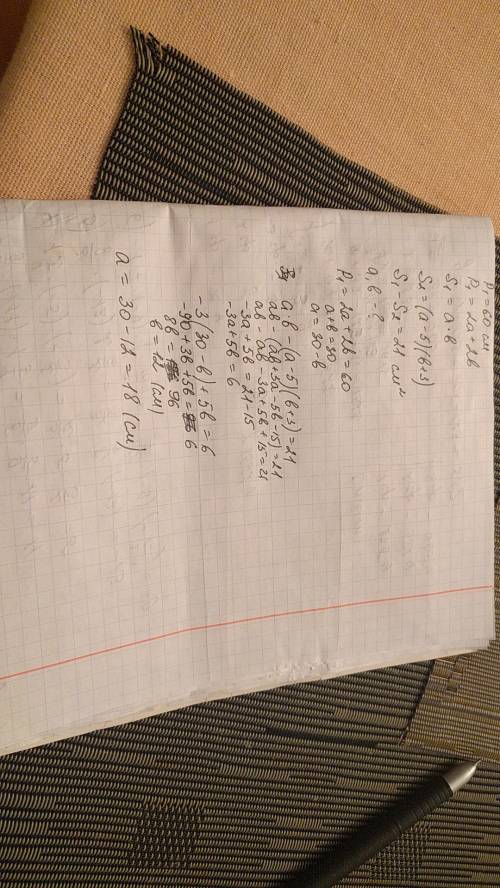 P₁ = 60 см
P₁ = 2a + 2b
S₁ = a · b
S₂ = (a - 5)(b + 3)
S₁ - S₂ = 21 см²
a, b - ?
P₁ = 2a + 2b = 60
a + b = 30
a = 30 - b
a · b - (a - 5)(b + 3) = 21
ab - (ab + 3a - 5b - 15) = 21
ab - ab - 3a + 5b + 15 = 21
-3a + 5b = 21 - 15
-3a + 5b = 6
-3(30 - b) + 5b = 6
-90 + 3b + 5b = 6
8b = 96
b = 12 (см)
a = 30 - 12 = 18 (см)